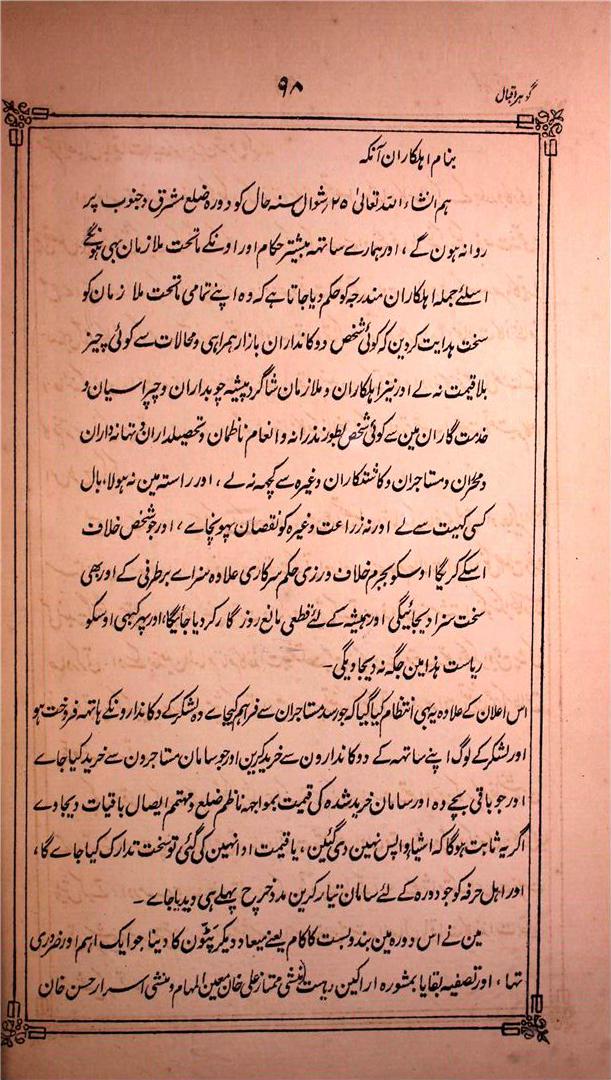 گوہر اقبال
۹۸
بنام اہلکاران آنکہ
ہم انشاء اللہ تعالیٰ ۲۵؍ شوال سنہ حال کو دورہ ضلع مشرق و جنوب پر
روانہ ہون گے ، اور ہمارے ساتھہ بیشتر حکام اور اونکے ماتحت ملازمان بہی ہونگے
اسلئے جملہ اہلکاران مندرجہ کو حکم دیا جاتا ہے کہ وہ اپنے تمامی ماتحت ملازمان کو
سخت ہدایت کردین کہ کوئی شخص دوکانداران بازار ہمراہی و محالات سے کوئی چیز
بلا قیمت نہ لے اور نیز اہلکاران و ملازمان شاگرد پیشہ چوبداران و چپراسیان و
خدمت گاران مین سے کوئی شخص بطور نذرانہ و انعام ناظمان و تحصیلداران و تہانہ داران
و محرران و مستاجران و کاشتکاران وغیرہ سے کچہہ نہ لے ، اور راستہ مین نہ ہولا، بال
کسی کہیت سے لے اور نہ زراعت وغیرہ کو نقصان پہونچاے ، اور جو شخص خلاف
اسکے کریگا اوسکو بجرم خلاف ورزی حکم سرکاری علاوہ سزاے برطرفی کے اور بہی
سخت سزا دیجائیگی اور ہمیشہ کے لئے قطعی مانع روزگار کر دیا جائیگا، اور پہر کبہی اوسکو
ریاست ہذا مین جگہ نہ دیجاویگی ۔
اس اعلان کے علاوہ یہ بہی انتظام کیا گیا کہ جو رسد مستاجران سے فراہم کیجاے وہ لشکر کے دکاندارونکے ہاتہہ فروخت ہو
اور لشکر کے لوگ اپنے ساتہہ کے دوکاندارون سے خرید کرین اور جو سامان مستاجرون سے خرید کیا جاے
اور جو باقی بچے وہ اور سامان خرید شدہ کی قیمت بمواجہہ ناظم ضلع و مہتمم ایصال باقیات دیجاوے
اگر یہ ثابت ہوگا کہ اشیا واپس نہین دی گئین ، یا قیمت ادا نہین کی گئی تو سخت تدارک کیا جاے گا ،
اور اہل حرفہ کو جو دورہ کے لئے سامان تیار کرین مدد خرچ پہلے ہی دیدیا جاے ۔
مین نے اس دورہ مین بندوبست کا کام یعنے میعاد دیکر پٹون کا دینا جو ایک اہم اور ضروری
تہا ، اور تصفیہ بقایا بمشورہ اراکین ریاست (منشی ممتاز علی خان معین المہام و منشی اسرار حسن خان